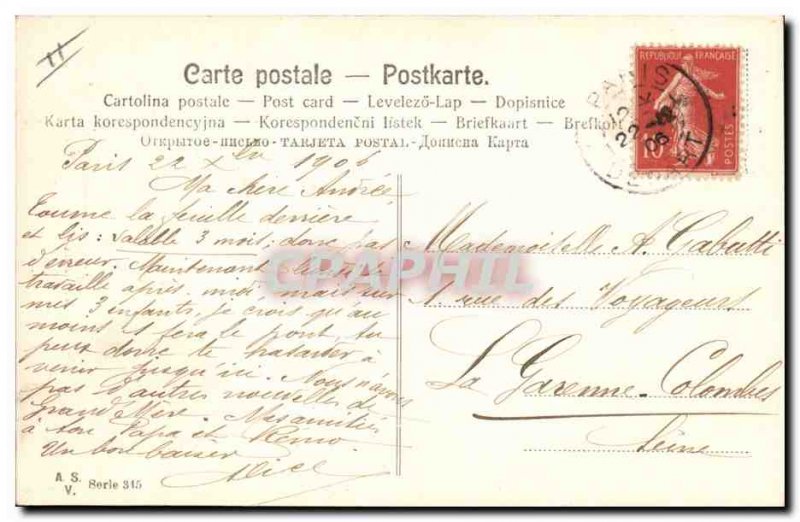 11
Carte postale — Postkarte.
Cartolina postale — Post card — Levelező-Lap — Dopisnice
Karta korespondencyjna — Korespondenční lístek — Briefkaart — Brefkort
Открытое-письмо-TARJETA POSTAL-Дописна Карта
REPUBLIQUE FRANÇAISE
10
POSTES
PARIS
22
06
Paris 22 Xbre 1906
Ma chère Andrée
Tourne la feuille derrière
et lis: valable 3 mois; donc pas
d'erreur. Maintenant
travaille après midi mais sur
mes 3 enfants, je crois qu'au
moins 1 fera le pont, tu
peux donc te hasarder à
venir jusqu'ici. Nous n'avons
pas d'autres nouvelles de
Grand Mère. Mes amitiés
à ton Papa et Remo.
Un bon baiser
Alice
Mademoiselle A. Cabutti
1 rue des Voyageurs
La Garenne-Colombes
Seine
CPAPHIL
A. S.
V. Serie 315